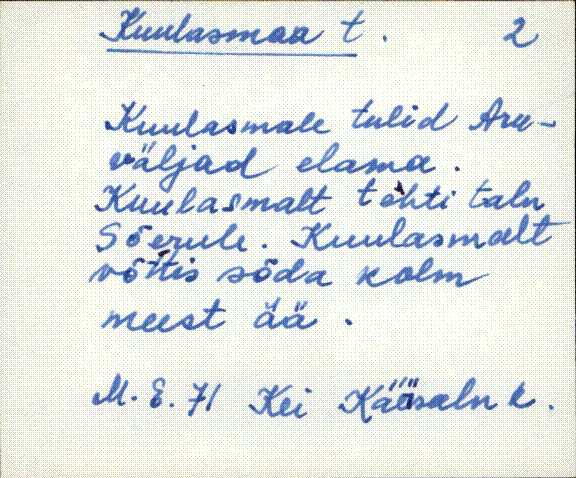 Kuulasmaa t. 2
Kuulasmale tulid Aru-
väljad elama.
Kuulasmalt tehti talu
Sõerule. Kuulasmalt
võttis sõda kolm
meest ää.
M. E. 71 Kei Kääsalu k.